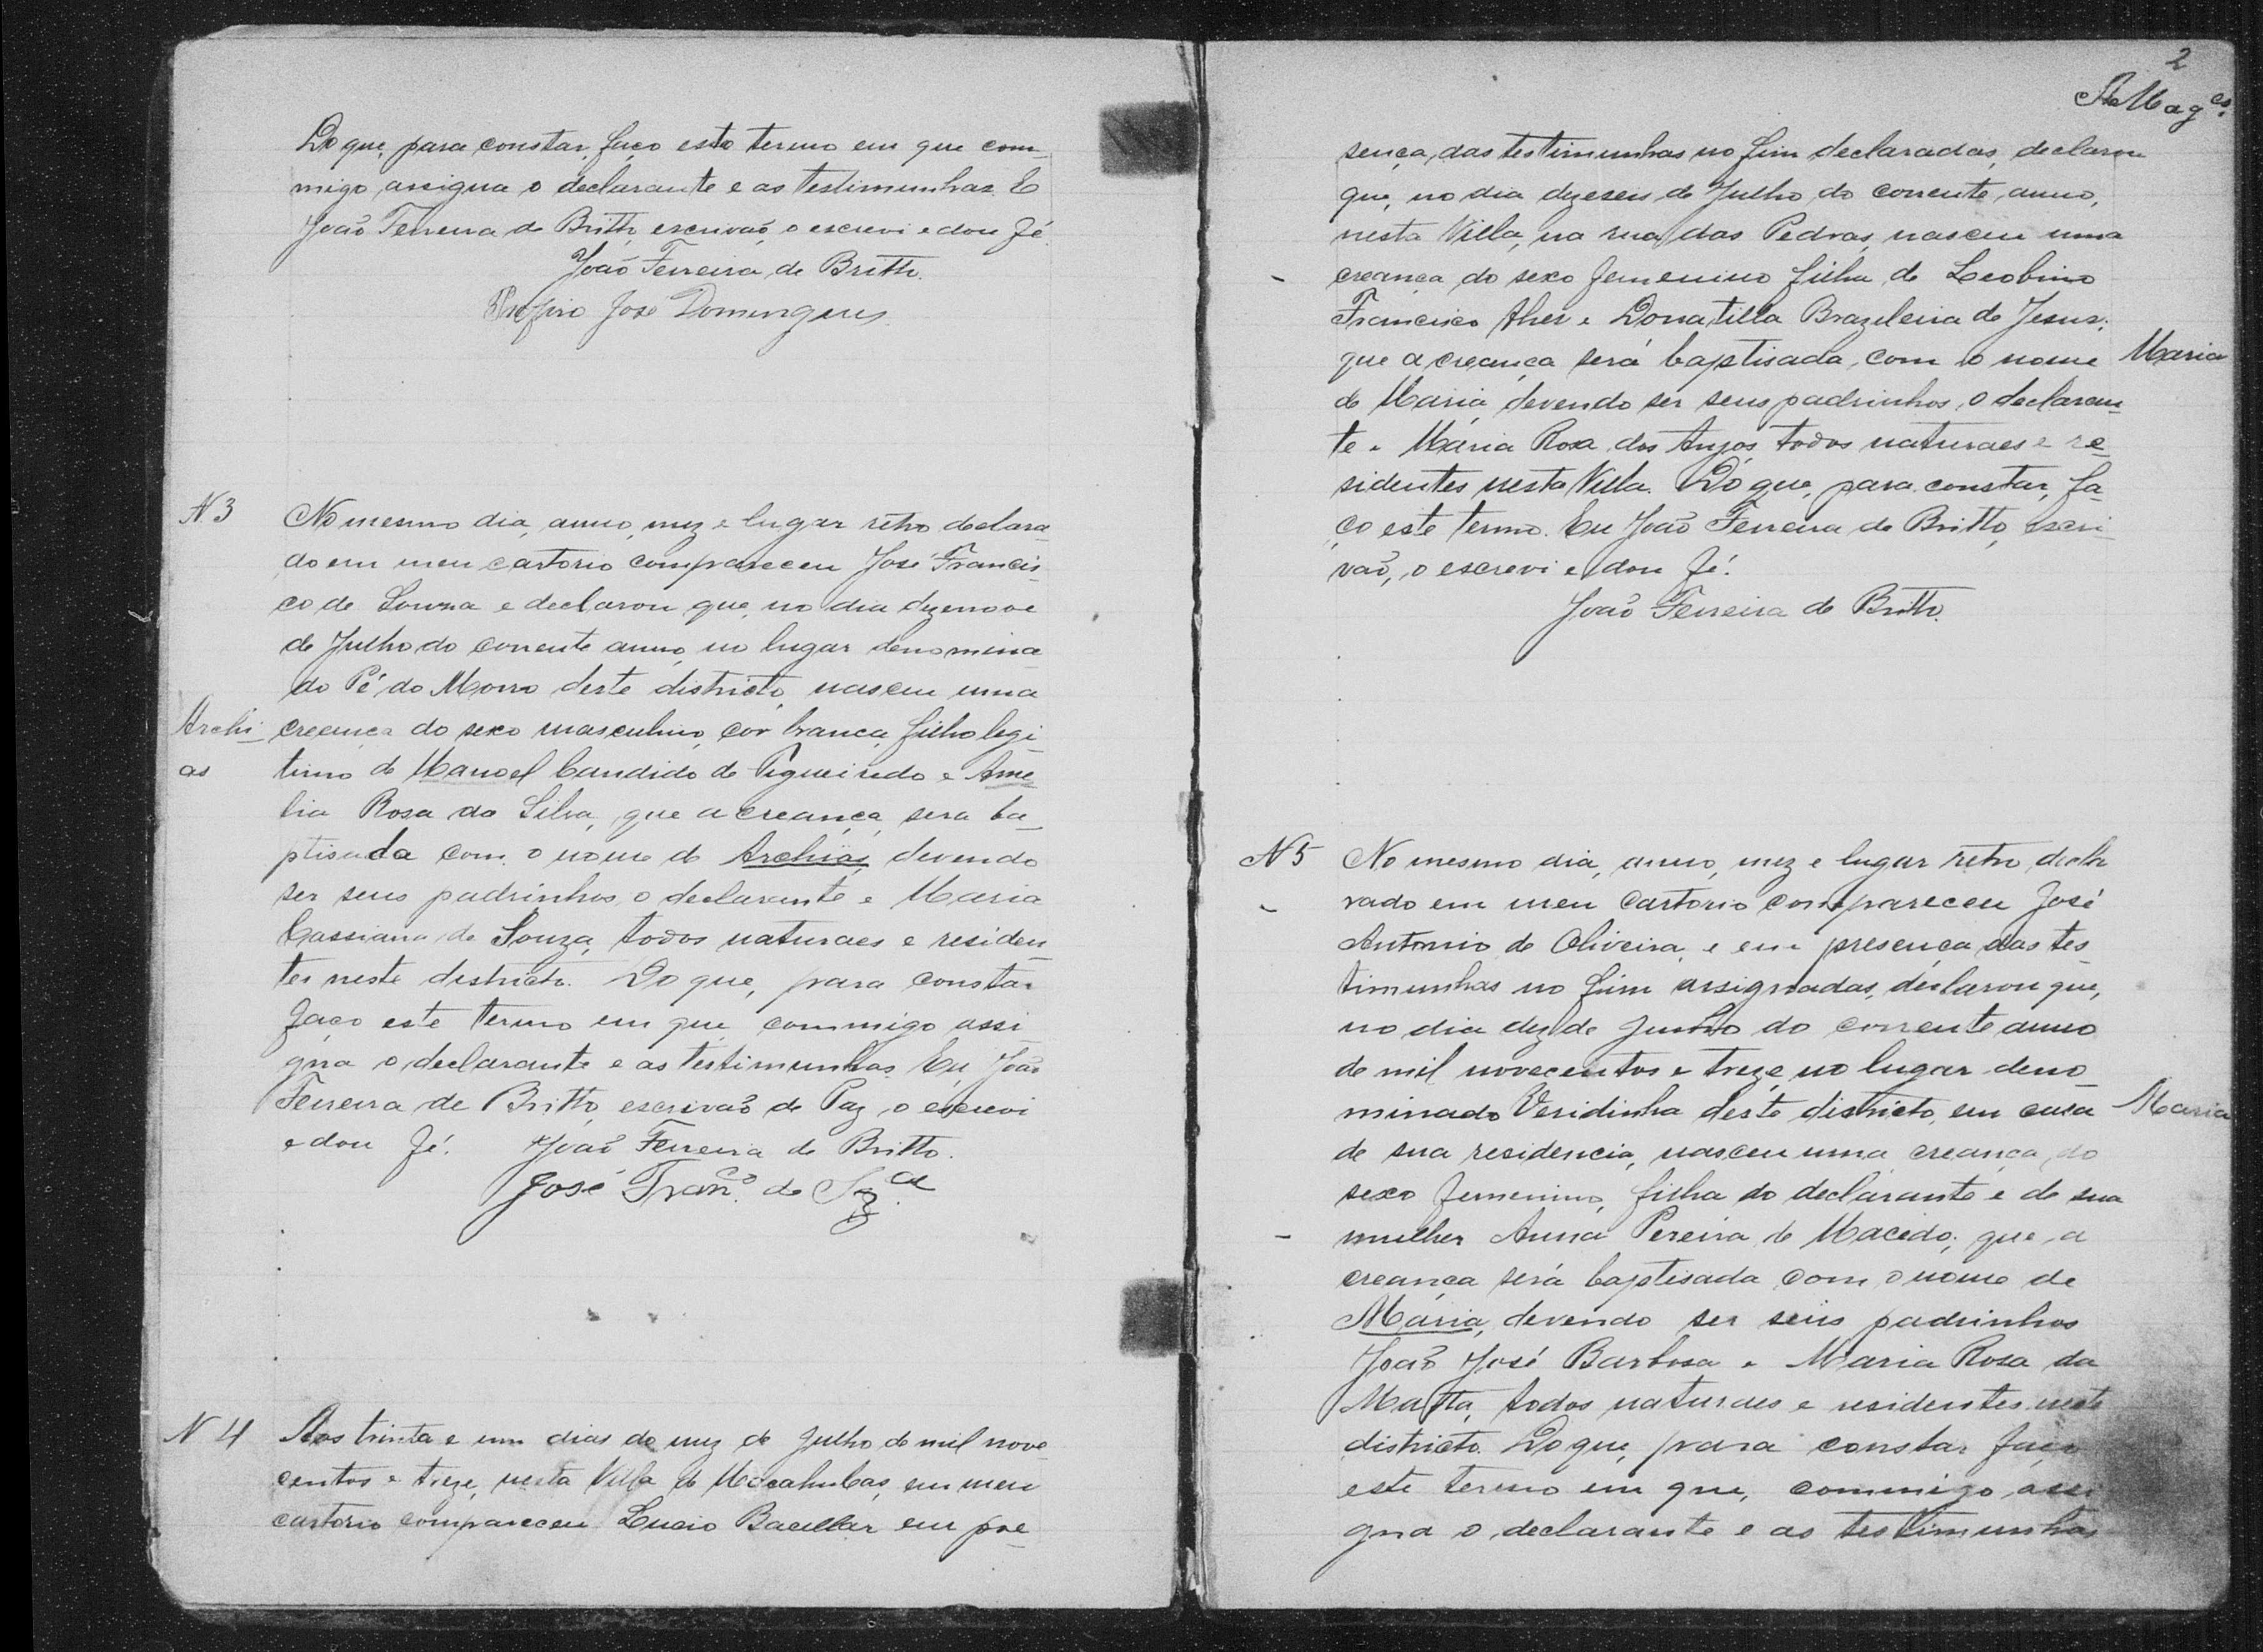 Do que, para constar, faço este termo em que com-
migo, assigna o declarante e as testimunhas. E
João Ferreira de Britto, escrivão, o escrevi e dou fé.
João Ferreira de Britto.
José Domingues
N 3
No mesmo dia, anno, mez e lugar retro declara-
do em meu cartorio compareceu José Francis-
co de Souza e declarou que, no dia dezenove
de Julho do corrente anno, no lugar denomina-
do Pé do Morro deste districto, nasceu uma
Archi-
as
creança do sexo masculino, cor branca, filho legi-
timo de Manoel Candido de Figueiredo e Ame-
lia Rosa da Silva, que a creança sera ba-
ptisada com o nome de Archias, devendo
ser seus padrinhos o declarante e Maria
Cassiana de Souza, todos naturaes e residen-
tes neste districto. Do que, para constar
faço este termo em que commigo assi-
gna o declarante e as testimunhas. Eu, João
Ferreira de Britto, escrivão de Paz, o escrevi
e dou fé. João Ferreira de Britto.
José Franco. de Sza.
N 4
Aos trinta e um dias do mez de Julho de mil nove-
centos e treze, nesta Villa de Macahubas, em meu
cartorio compareceu Lucio Bacellar em pre-
2
sença, das testimunhas no fim declaradas, declarou
que, no dia dezeseis de Julho do corrente, anno,
nesta Villa, na rua das Pedras, nasceu uma
creança do sexo femenino filha de Leobino
Francisco e Donatilla Brazileira de Jesus;
que a creança será baptisada, com o nome
Maria
de Maria devendo ser seus padrinhos, o declaran-
te e Maria Rosa dos Anjos, todos naturaes e re-
sidentes nesta Villa. Do que, para constar, fa-
ço este termo. Eu João Ferreira de Britto, escri-
vão, o escrevi e dou fé.
João Ferreira de Britto.
N 5
No mesmo dia, anno, mez e lugar retro decla-
rado em meu cartorio compareceu José
Antonio de Oliveira, e em presença das tes-
timunhas no fim assignadas, declarou que,
no dia dez de Junho do corrente anno
de mil novecentos e treze, no lugar deno-
minado Veridinha deste districto, em casa
Maria
de sua residencia, nasceu uma creança do
sexo femenino, filha do declarante e de sua
mulher Anna Pereira de Macedo; que a
creança será baptisada com o nome de
Maria, devendo ser seus padrinhos
João José Barbosa e Maria Rosa da
Matta, todos naturaes e residentes neste
districto. Do que, para constar faço
este termo em que, commigo assi-
gna o declarante e as testimunhas